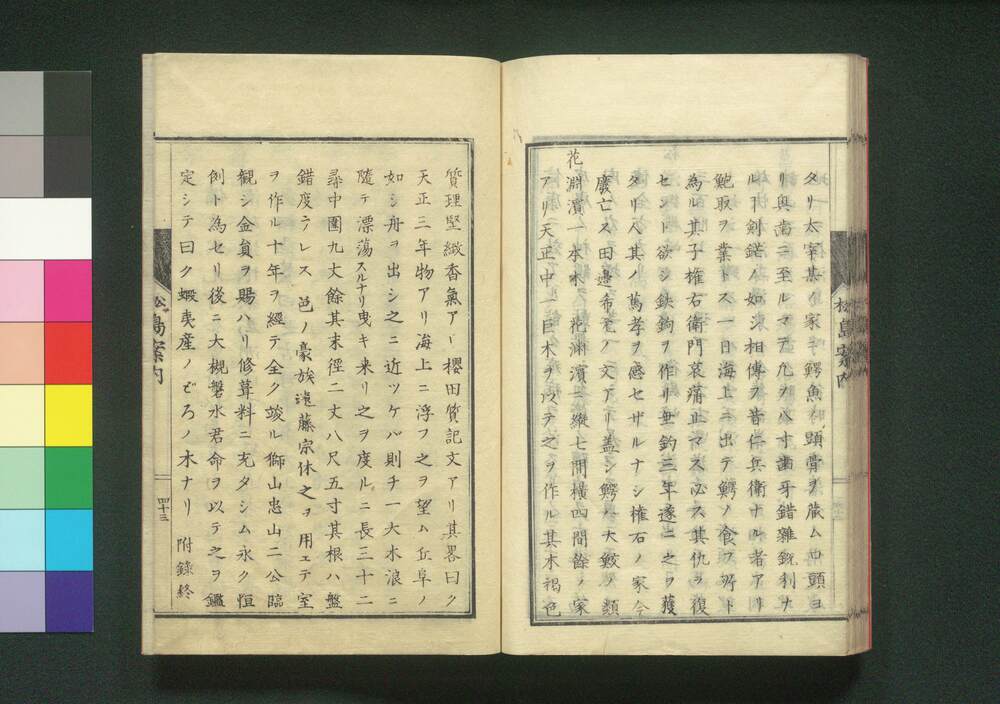 タリ太宰某ノ家ニ鰐魚ノ頭骨ヲ蔵ム口頭ヨ
リ奥歯ニ至ルマテ凡ヲ八寸歯牙錯雜鋭利ナ
ル丁剣鋩ノ如シ相傳フ昔仁兵衛ナル者アリ
鮑取ヲ業トス一日海上ニ出テ鰐ノ食フ所ト
為ル其子権右衛門哀痛止マス必ス其仇ヲ復
セント欲シ鉄鉤ヲ作リ垂釣三年遂ニ之ヲ獲
タリ人其ノ篤孝ヲ感セザルナシ権右ノ家今
廢亡ス田邉希元ノ文アリ盖シ鰐ハ大鮫ノ類
花淵濱一本木 花渕濱ニ縦七間横四間餘ノ家
アリ天正中一巨木ヲ以テ之ヲ作ル其木褐色
松島案内
質理堅緻香氣アリ櫻田質記文アリ其畧曰ク
天正三年物アリ海上ニ浮フ之ヲ望ム丘阜ノ
如シ舟ヲ出シ之ニ近ツケバ則チ一大木浪ニ
隨テ漂蕩スルナリ曳キ来リ之ヲ度ルニ長三十二
尋中圍九丈餘其末徑二丈八尺五寸其根ハ盤
錯度ラレス 邑ノ豪族遠藤宗休之ヲ 用ェテ室
ヲ作ル十年ヲ經テ全ク竣ル獅山忠山二公臨
観シ金員ヲ賜ハリ修葺料ニ充タシム永ク恒
例ト為セリ後ニ大槻磐水君命ヲ以テ之ヲ鑑
定シテ曰ク蝦夷産ノどろノ木ナリ 附錄終
松島案内
四十三